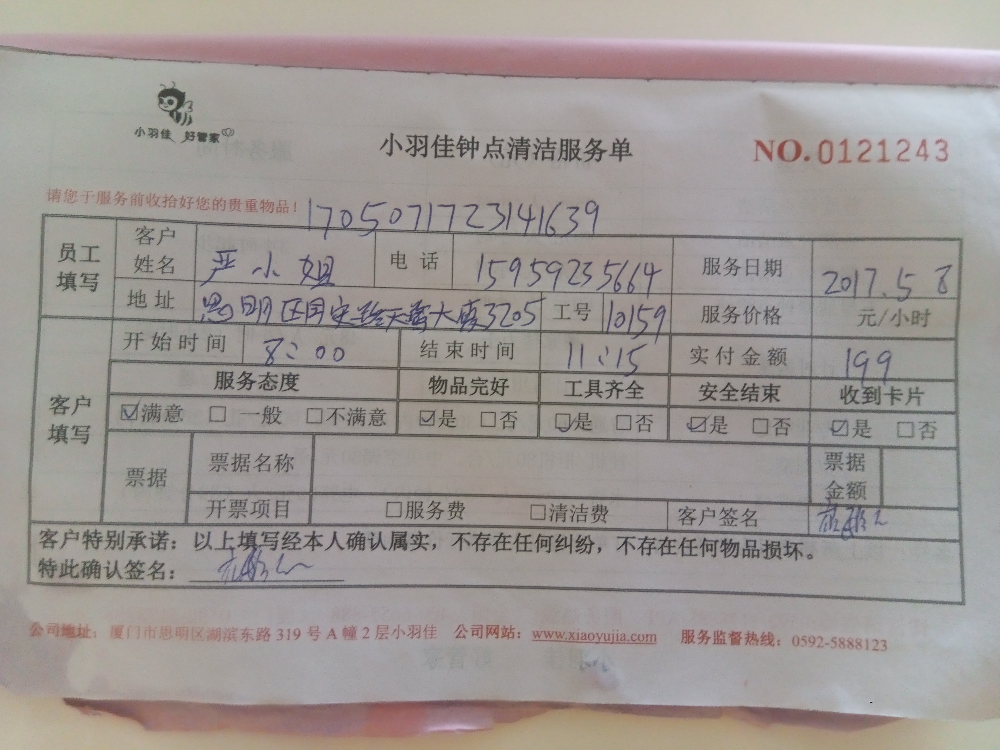 小羽佳 好管家
小羽佳钟点清洁服务单
NO.0121243
请您于服务前收拾好您的贵重物品！
1705071723141639
员工填写 客户姓名 严小姐 电话 15959235664 服务日期 2017.5 8
地址 思明区国宝路天鹭大厦3205 工号 10159 服务价格 元/小时
客户填写 开始时间 8:00 结束时间 11:15 实付金额 199
服务态度 物品完好 工具齐全 安全结束 收到卡片
☑满意 □一般 □不满意 ☑是 □否 ☑是 □否 ☑是 □否 ☑是 □否
票据 票据名称 票据金额
开票项目 □服务费 □清洁费 客户签名
客户特别承诺：以上填写经本人确认属实，不存在任何纠纷，不存在任何物品损坏。
特此确认签名：
公司地址：厦门市思明区湖滨东路 319 号 A 幢 2 层小羽佳 公司网站：www.xiaoyujia.com 服务监督热线：0592-5888123